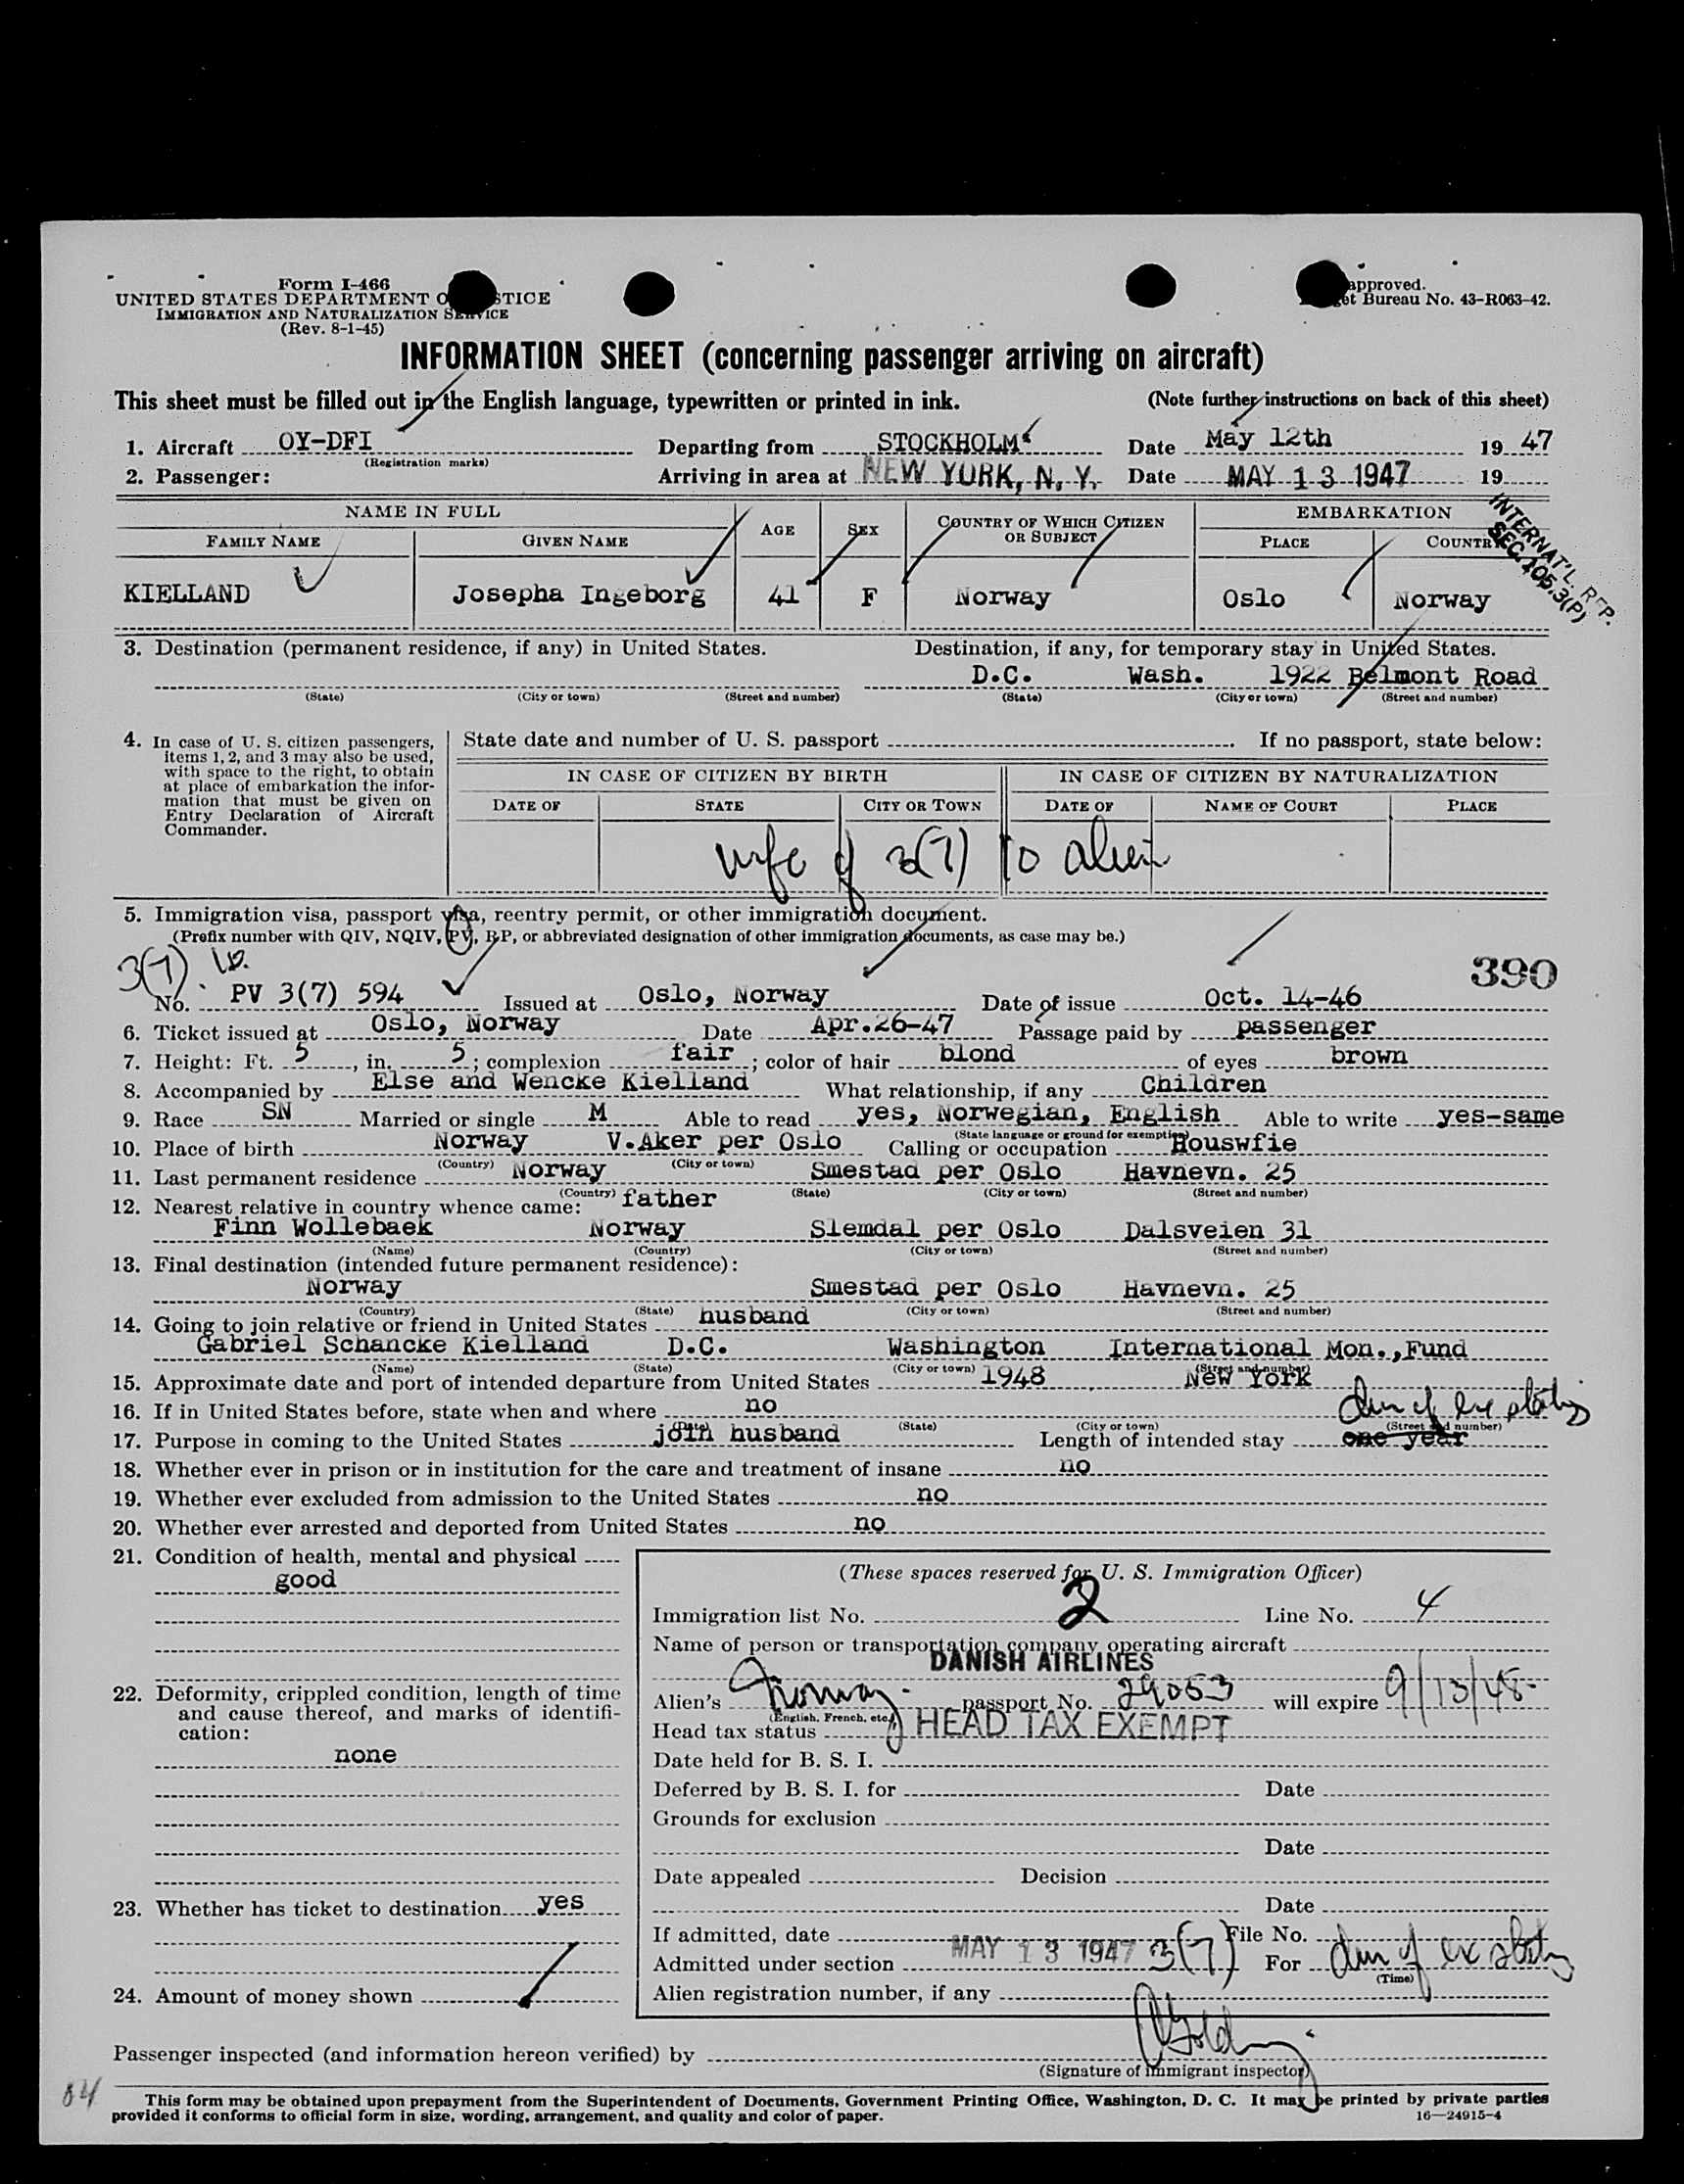 Form I-466
UNITED STATES DEPARTMENT O STICE
IMMIGRATION AND NATURALIZATION SERVICE
(Rev. 8-1-45)
approved.
et Bureau No. 43-R063-42.
INFORMATION SHEET (concerning passenger arriving on aircraft)
This sheet must be filled out in the English language, typewritten or printed in ink. (Note further instructions on back of this sheet)
1. Aircraft OY-DFI Departing from STOCKHOLM Date May 12th 19 47
(Registration marks)
2. Passenger: Arriving in area at NEW YORK, N. Y. Date MAY 13 1947 19
INTERNAT'L. REP.
SEC. 105.3(P)
NAME IN FULL AGE SEX COUNTRY OF WHICH CITIZEN OR SUBJECT EMBARKATION
FAMILY NAME GIVEN NAME PLACE COUNTR
KIELLAND Josepha Ingeborg 41 F Norway Oslo Norway
3. Destination (permanent residence, if any) in United States. Destination, if any, for temporary stay in United States.
D.C. Wash. 1922 Belmont Road
(State) (City or town) (Street and number) (State) (City or town) (Street and number)
4. In case of U. S. citizen passengers, items 1, 2, and 3 may also be used, with space to the right, to obtain at place of embarkation the information that must be given on Entry Declaration of Aircraft Commander.
State date and number of U. S. passport If no passport, state below:
IN CASE OF CITIZEN BY BIRTH IN CASE OF CITIZEN BY NATURALIZATION
DATE OF STATE CITY OR TOWN DATE OF NAME OF COURT PLACE
wife of 3(7) io alien
5. Immigration visa, passport visa, reentry permit, or other immigration document.
(Prefix number with QIV, NQIV, PV, RP, or abbreviated designation of other immigration documents, as case may be.)
3(7) io.
390
No. PV 3(7) 594 Issued at Oslo, Norway Date of issue Oct. 14-46
6. Ticket issued at Oslo, Norway Date Apr.26-47 Passage paid by passenger
7. Height: Ft. 5, in. 5; complexion fair; color of hair blond of eyes brown
8. Accompanied by Else and Wencke Kielland What relationship, if any Children
9. Race SN Married or single M Able to read yes, Norwegian, English Able to write yes-same
(State language or ground for exemption)
10. Place of birth Norway V.Aker per Oslo Calling or occupation Houswfie
(Country) (City or town)
11. Last permanent residence Norway Smestad per Oslo Havnevn. 25
(Country) (State) (City or town) (Street and number)
12. Nearest relative in country whence came: father
Finn Wollebaek Norway Slemdal per Oslo Dalsveien 31
(Name) (Country) (City or town) (Street and number)
13. Final destination (intended future permanent residence):
Norway Smestad per Oslo Havnevn. 25
(Country) (State) (City or town) (Street and number)
14. Going to join relative or friend in United States husband
Gabriel Schancke Kielland D.C. Washington International Mon., Fund
(Name) (State) (City or town) (Street and number)
15. Approximate date and port of intended departure from United States 1948 New York
16. If in United States before, state when and where no
(Date) (State) (City or town) (Street and number)
17. Purpose in coming to the United States join husband Length of intended stay one year
18. Whether ever in prison or in institution for the care and treatment of insane no
19. Whether ever excluded from admission to the United States no
20. Whether ever arrested and deported from United States no
21. Condition of health, mental and physical
good
22. Deformity, crippled condition, length of time and cause thereof, and marks of identification:
none
23. Whether has ticket to destination yes
24. Amount of money shown
(These spaces reserved for U. S. Immigration Officer)
Immigration list No. 2 Line No. 4
Name of person or transportation company operating aircraft
DANISH AIRLINES
Alien's Norway passport No. 29053 will expire 9/13/48
(English, French, etc.)
Head tax status HEAD TAX EXEMPT
Date held for B. S. I.
Deferred by B. S. I. for Date
Grounds for exclusion
Date
Date appealed Decision
Date
If admitted, date MAY 13 1947 File No.
Admitted under section 3(7) For
(Time)
Alien registration number, if any
Passenger inspected (and information hereon verified) by
(Signature of immigrant inspector)
84
This form may be obtained upon prepayment from the Superintendent of Documents, Government Printing Office, Washington, D. C. It may be printed by private parties
provided it conforms to official form in size, wording, arrangement, and quality and color of paper.
16—24915-4